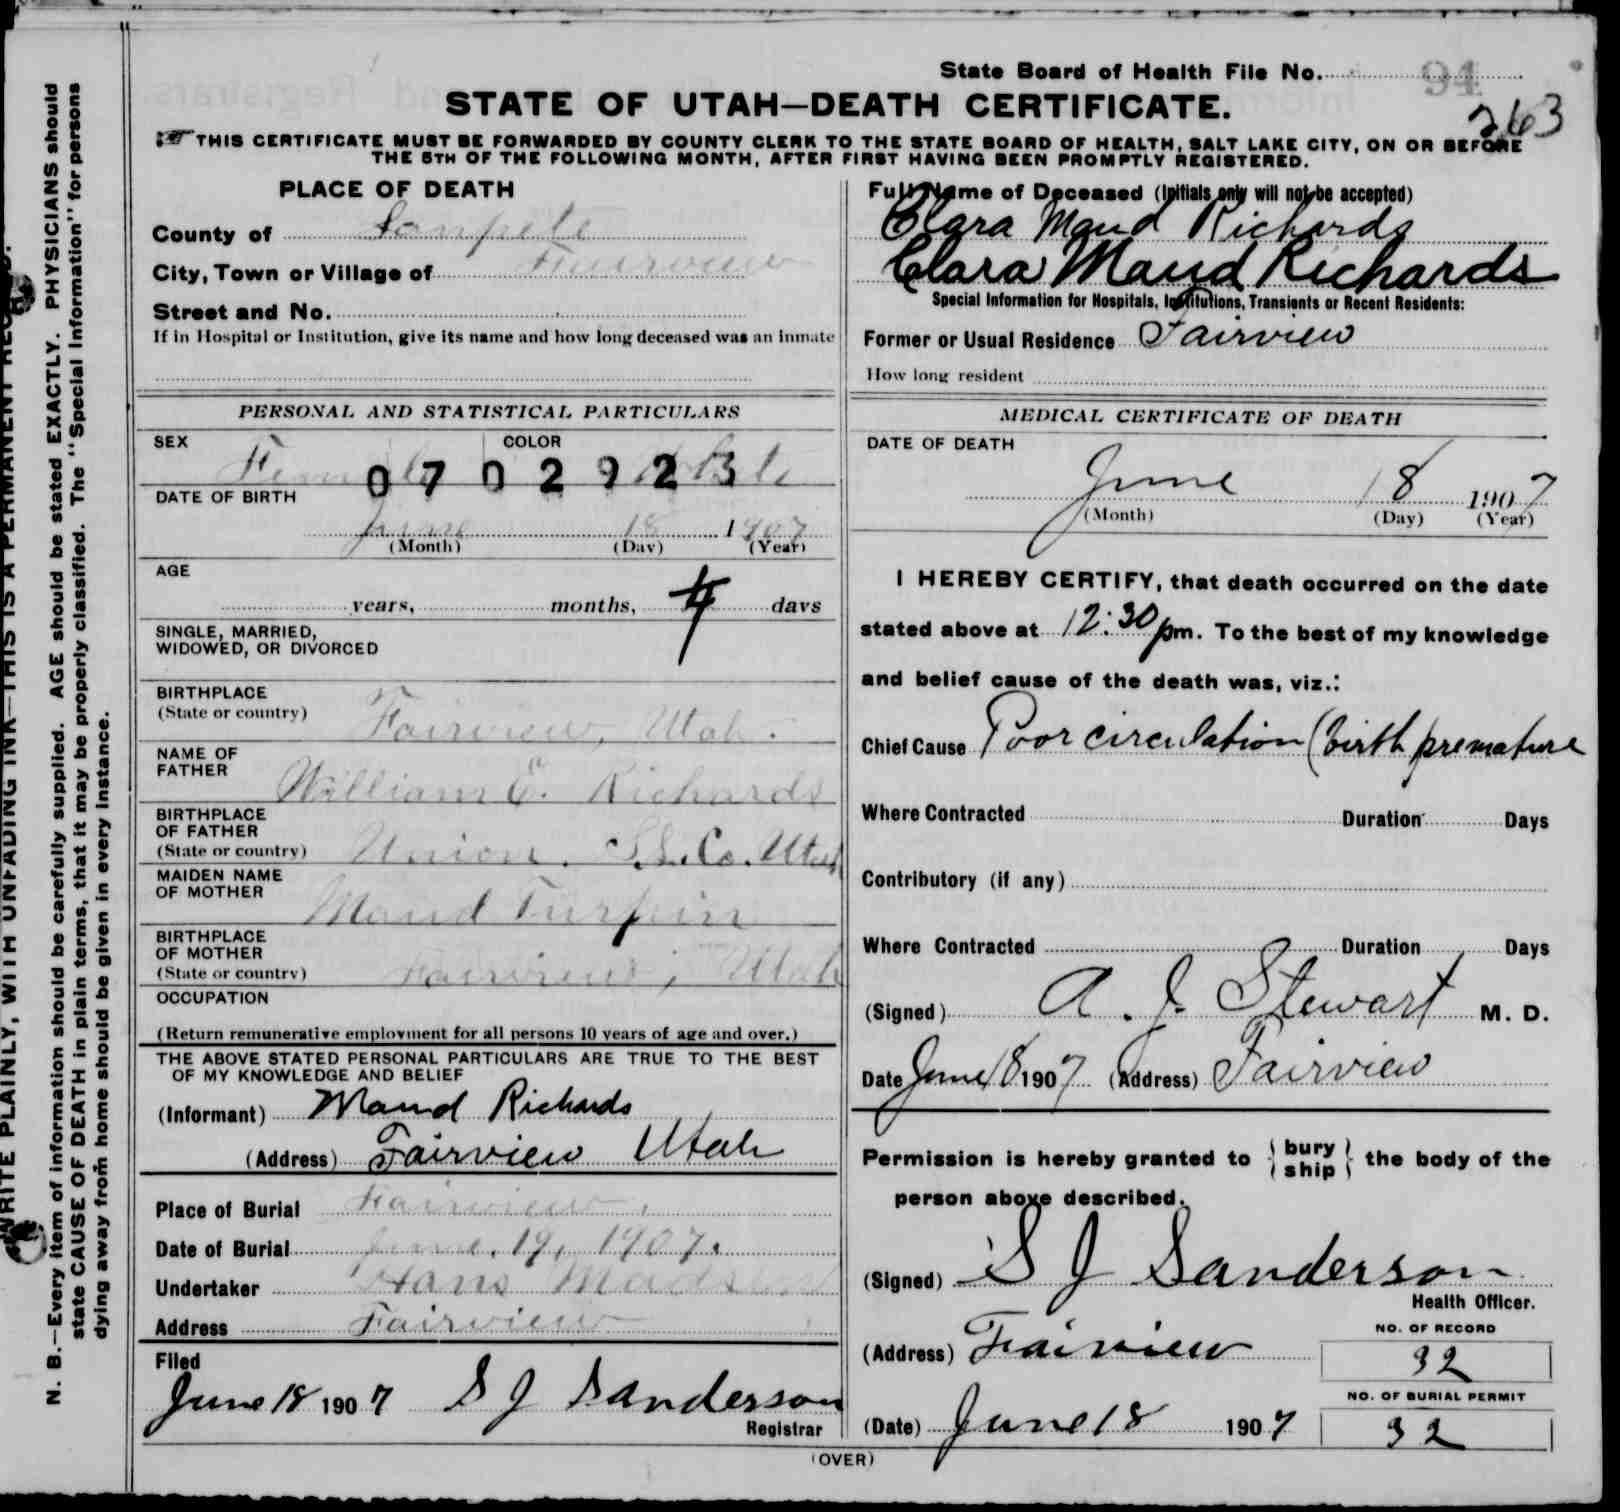 State Board of Health File No. 94
263
STATE OF UTAH—DEATH CERTIFICATE.
THIS CERTIFICATE MUST BE FORWARDED BY COUNTY CLERK TO THE STATE BOARD OF HEALTH, SALT LAKE CITY, ON OR BEFORE
THE 5TH OF THE FOLLOWING MONTH, AFTER FIRST HAVING BEEN PROMPTLY REGISTERED.
PLACE OF DEATH
County of Sanpete
City, Town or Village of Fairview
Street and No.
If in Hospital or Institution, give its name and how long deceased was an inmate
PERSONAL AND STATISTICAL PARTICULARS
SEX Female COLOR White
0702923
DATE OF BIRTH
June 18 1907
(Month) (Day) (Year)
AGE
years, months, 4 days
SINGLE, MARRIED,
WIDOWED, OR DIVORCED
BIRTHPLACE
(State or country) Fairview, Utah.
NAME OF
FATHER William E. Richards
BIRTHPLACE
OF FATHER
(State or country) Union. S.L. Co. Utah
MAIDEN NAME
OF MOTHER Maud Turpin
BIRTHPLACE
OF MOTHER
(State or country) Fairview, Utah
OCCUPATION
(Return remunerative employment for all persons 10 years of age and over.)
THE ABOVE STATED PERSONAL PARTICULARS ARE TRUE TO THE BEST
OF MY KNOWLEDGE AND BELIEF
(Informant) Maud Richards
(Address) Fairview Utah
Place of Burial Fairview,
Date of Burial June. 19, 1907.
Undertaker Hans Madsen
Address Fairview
Filed
June 18 1907 S J Sanderson
Registrar
Full Name of Deceased (Initials only will not be accepted)
Clara Maud Richards
Clara Maud Richards
Special Information for Hospitals, Institutions, Transients or Recent Residents:
Former or Usual Residence Fairview
How long resident
MEDICAL CERTIFICATE OF DEATH
DATE OF DEATH
June 18 1907
(Month) (Day) (Year)
I HEREBY CERTIFY, that death occurred on the date
stated above at 12:30 pm. To the best of my knowledge
and belief cause of the death was, viz.:
Chief Cause Poor circulation (birth premature
Where Contracted Duration Days
Contributory (if any)
Where Contracted Duration Days
(Signed) A. J. Stewart M. D.
Date June 18 1907 (Address) Fairview
Permission is hereby granted to { bury ship } the body of the
person above described.
(Signed) S J Sanderson
Health Officer.
(Address) Fairview
NO. OF RECORD
32
NO. OF BURIAL PERMIT
32
(Date) June 18 1907
(OVER)
N. B.—Every item of information should be carefully supplied. AGE should be stated EXACTLY. PHYSICIANS should
state CAUSE OF DEATH in plain terms, that it may be properly classified. The "Special Information" for persons
dying away from home should be given in every instance.
WRITE PLAINLY, WITH UNFADING INK—THIS IS A PERMANENT RECORD.